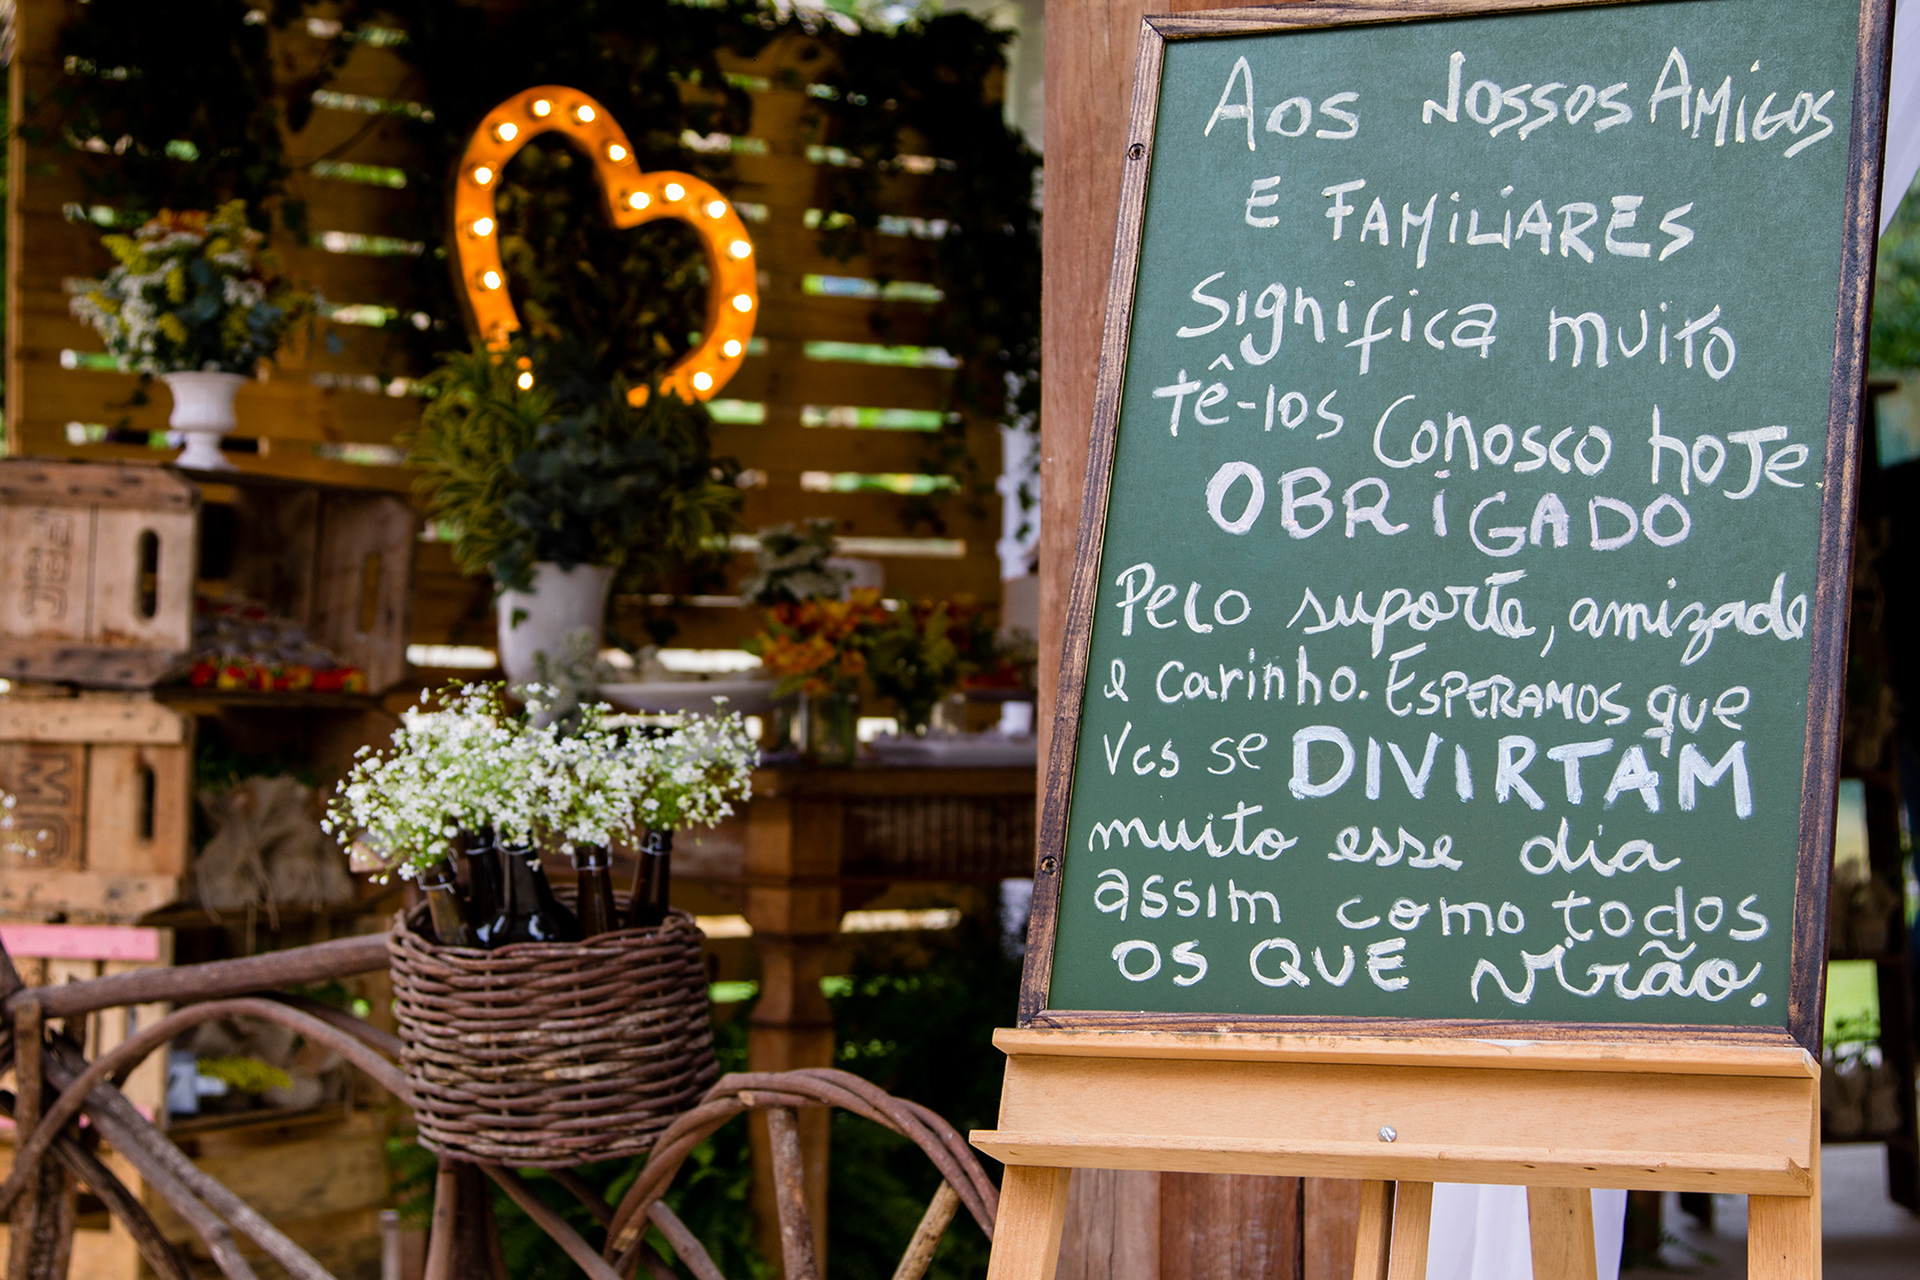 AOS NOSSOS AMIGOS
E FAMILIARES
Significa muito
tê-los Conosco hoje
OBRIGADO
Pelo suporte, amizade
e carinho. ESPERAMOS que
Vcs se DIVIRTAM
muito esse dia
assim como todos
OS QUE virão.